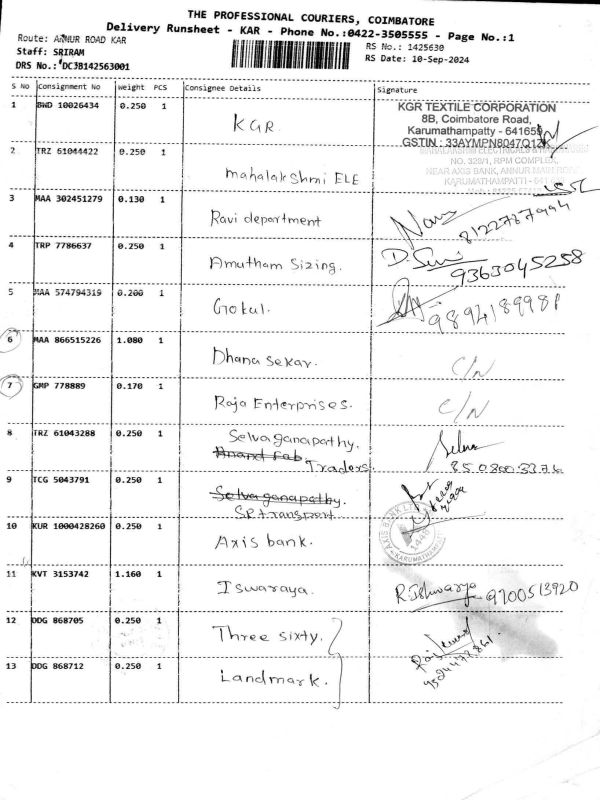 THE PROFESSIONAL COURIERS, COIMBATORE
Delivery Runsheet - KAR - Phone No.:0422-3505555 - Page No.:1
Route: ANNUR ROAD KAR
RS No.: 1425630
Staff: SRIRAM
RS Date: 10-Sep-2024
DRS No.: DC3B142563001
S No Consignment No Weight PCS Consignee Details Signature
1 BWD 10026434 0.250 1 KGR
KGR TEXTILE CORPORATION
8B, Coimbatore Road,
Karumathampatty - 641659
GSTIN : 33AYMPN8047Q1Z
2 TRZ 61044422 0.250 1 mahalakshmi ELE
NO. 328/1, RPM COMPLEX,
NEAR AXIS BANK, ANNUR MAIN ROAD
KARUMATHAMPATTI - 641
3 MAA 302451279 0.130 1 Ravi department
8122787994
4 TRP 7786637 0.250 1 Amutham Sizing.
9363045258
5 MAA 574794319 0.200 1 Gokul.
9894189981
6 MAA 866515226 1.080 1 Dhana sekar. C/N
7 GMP 778889 0.170 1 Raja Enterprises. C/N
8 TRZ 61043288 0.250 1 Selvaganapathy.
Anand Fab Traders.
Selva
9 TCG 5043791 0.250 1 Selvaganapathy.
SP transport
10 KUR 1000428260 0.250 1 Axis bank.
AXIS BANK LTD
KARUMATHAMPATTI
11 KVT 3153742 1.160 1 Iswaraya. R. Ishwarya 9700513920
12 DDG 868705 0.250 1 Three sixty.
13 DDG 868712 0.250 1 Landmark.